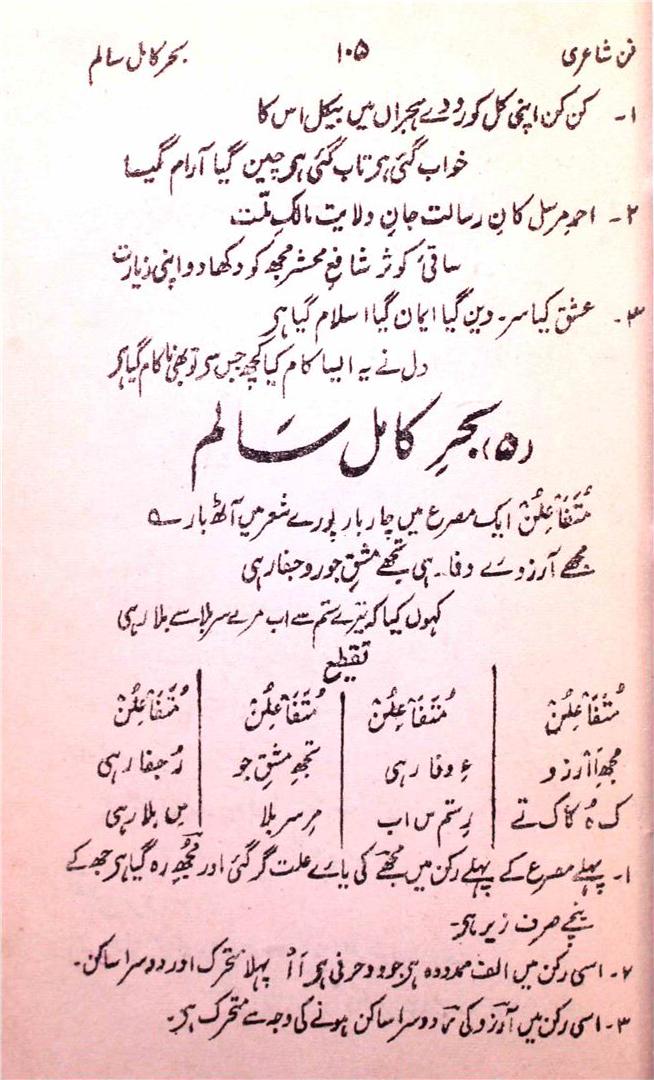 فن شاعری ۱۰۵ بحر کامل سالم
۱۔ کن کن اپنی کل کو رووے ہجراں میں بیکل اس کا
خواب گئی ہر تاب گئی ہر چین گیا آرام گیا
۲۔ احمدِ مرسل کانِ رسالت جانِ ولایت مالکِ ملّت
ساقیٔ کوثر شافعِ محشر مجھ کو دکھا دو اپنی زیارت
۳۔ عشق کیا سر۔ دین گیا ایمان گیا اسلام گیا ہر
دل نے یہ ایسا کام کیا کچھ جس سر تو بھی ناکام گیا ہر
(۵) بحرِ کامل سالم
مُتَفَاعِلُنْ ایک مصرع میں چار بار پورے شعر میں آٹھ بار ے
مجھے آرزوے وفا۔ ہی تجھے مشقِ جور و جفا رہی
کہوں کیا کہ تیرے ستم سے اب مرے سر بلا سے بلا رہی
تقطیع
مُتَفَاعِلُنْ مُتَفَاعِلُنْ مُتَفَاعِلُنْ مُتَفَاعِلُنْ
مجھِ اَاْرزو ءِ وفا رہی تجھِ مشقِ جو رُ جفا رہی
ک ہُ کا ک تے رِ ستم س اب مِر سر بلا س بلا رہی
۱۔ پہلے مصرع کے پہلے رکن میں مجھے کی یاے علت گر گئی اور مجھِ رہ گیا ہر جھ کے
نیچے صرف زیر ہر۔
۲۔ اسی رکن میں الف ممدودہ ہر جو دو حرفی ہر اَاْ پہلا متحرک اور دوسرا ساکن۔
۳۔ اسی رکن میں آرزو کی ر دوسرا ساکن ہونے کی وجہ سے متحرک ہر۔